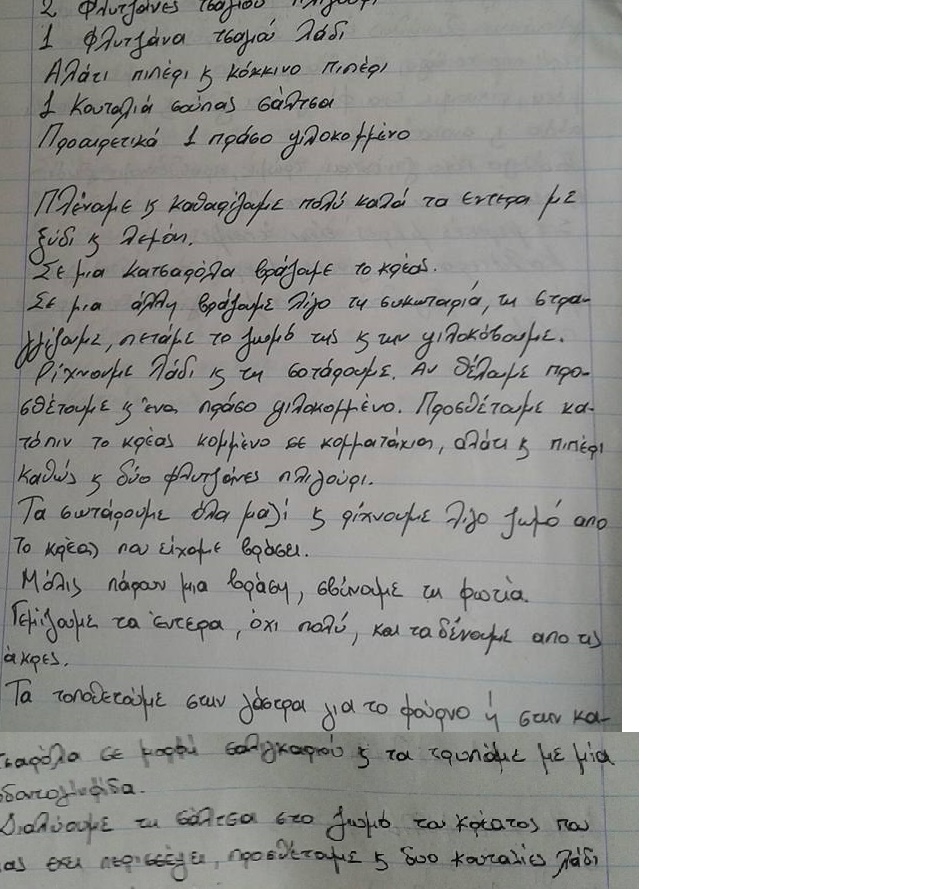 2 Φλυτζάνες τσαγιού πλιγούρι
1 Φλυτζάνα τσαγιού λάδι
Αλάτι πιπέρι ϗ κόκκινο πιπέρι
1 Κουταλιά σούπας σάλτσα
Προαιρετικά 1 πράσο ψιλοκομμένο
Πλένουμε ϗ καθαρίζουμε πολύ καλά τα έντερα με
ξύδι ϗ λεμόνι.
Σε μια κατσαρόλα βράζουμε το κρέας.
Σε μια άλλη βράζουμε λίγο τη συκωταριά, τη στρα-
γγίζουμε, πετάμε το ζωμό της ϗ την ψιλοκόβουμε.
Ρίχνουμε λάδι ϗ τη σοτάρουμε. Αν θέλουμε προ-
σθέτουμε ϗ ένα πράσο ψιλοκομμένο. Προσθέτουμε κα-
τόπιν το κρέας κομμένο σε κομματάκια, αλάτι ϗ πιπέρι
καθώς ϗ δύο φλυτζάνες πλιγούρι.
Τα σωτάρουμε όλα μαζί ϗ ρίχνουμε λίγο ζωμό απο
το κρέας που είχαμε βράσει.
Μόλις πάρουν μια βράση, σβίνουμε τη φωτιά.
Γεμίζουμε τα έντερα, όχι πολύ, και τα δένουμε απο τις
άκρες.
Τα τοποθετούμε στην γάστρα για το φούρνο ή στην κα-
τσαρόλα σε μορφή σαλιγκαριού ϗ τα τρυπάμε με μία
οδοντογλυφίδα.
Διαλύουμε τη σάλτσα στο ζωμό του κρέατος που
μας έχει περισσέψει, προσθέτουμε ϗ δυο κουταλιές λάδι